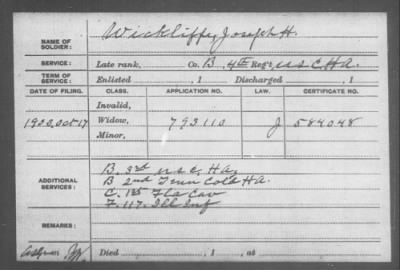 NAME OF SOLDIER: Wickliffe, Joseph H.
SERVICE: Late rank, Co. B, 4th Reg't U.S.C.H.A.
TERM OF SERVICE: Enlisted , 1 Discharged , 1
DATE OF FILING. CLASS. APPLICATION NO. LAW. CERTIFICATE NO.
Invalid,
1900, Oct 17 Widow, 793110 J 584048
Minor,
ADDITIONAL SERVICES: B. 3rd U.S.C.H.A.
B 2nd Tenn Cold H.A.
C. 1st Fla Cav
F. 117. Ill Inf
REMARKS:
Died , 1 , at